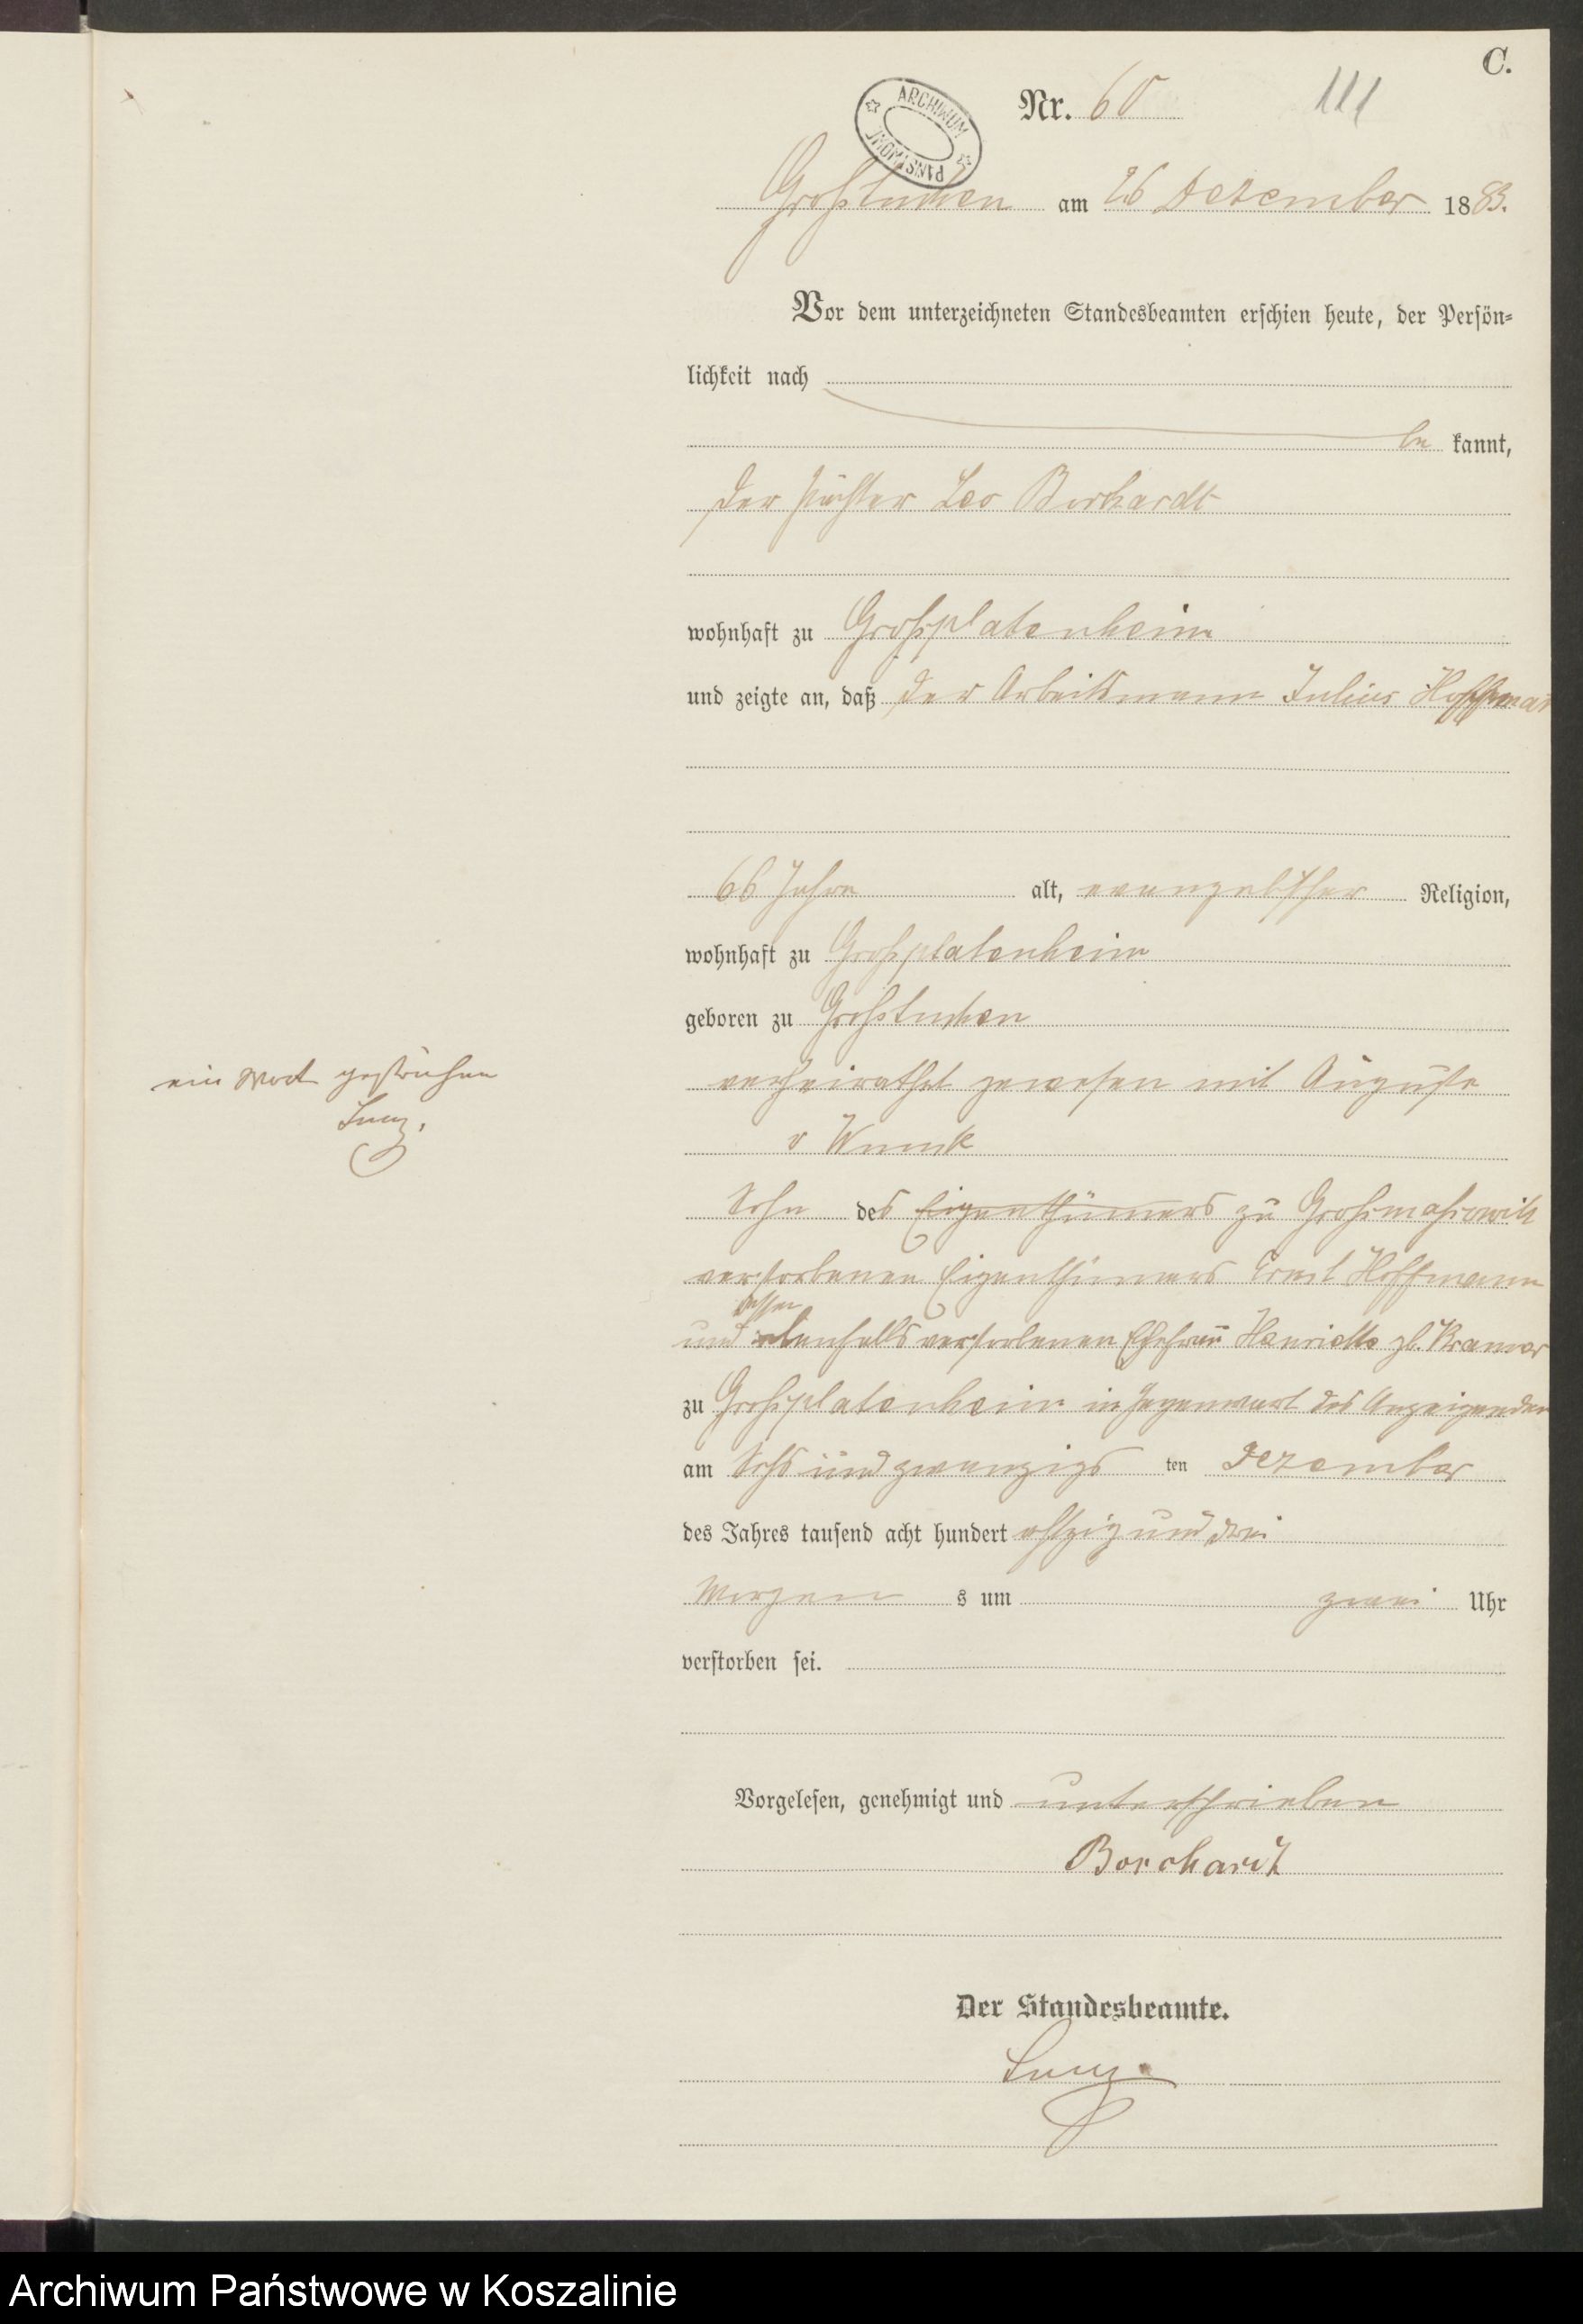 C.
Nr. 60 111
ARCHIWUM PAŃSTWOWE
Großtuchen am 26 Dezember 1883.
Vor dem unterzeichneten Standesbeamten erschien heute, der Persön-
lichkeit nach
be kannt,
der Pächter Leo Borchardt
wohnhaft zu Großplatenheim
und zeigte an, daß der Arbeitsmann Julius Hoffman
66 Jahre alt, evangelischer Religion,
wohnhaft zu Großplatenheim
geboren zu Großtuchen
verheirathet gewesen mit Auguste
ein Wort gestrichen
v Wnuck
Sohn des Eigenthümers zu Großmassowitz
verstorbenen Eigenthümers Ernst Hoffmann
dessen
und ebenfalls verstorbenen Ehefrau Henriette gb. Kramer
zu Großplatenheim in Gegenwart des Anzeigenden
am Sechs und zwanzigs ten Dezember
des Jahres tausend acht hundert achtzig und drei
Morgen s um zwei Uhr
verstorben sei.
Vorgelesen, genehmigt und unterschrieben
Borchardt
Der Standesbeamte.
Archiwum Państwowe w Koszalinie